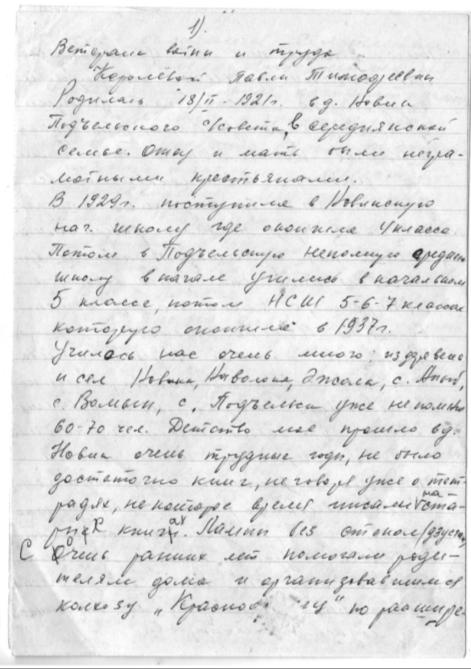 1).
Ветерана войны и труда
Королёвой Павлы Тимофеевны
Родилась 18/II-1921г. в д. Новик
Подъельского с/совета, в середняцкой
семье. Отец и мать были негра-
мотными крестьянами.
В 1929г. поступила в Новикскую
нач. школу где окончила 4 класса
Потом в Подъельскую неполную среднюю
школу в начале училась в начальном
5 классе, потом НСШ 5-6-7 классы
которую окончила в 1937г.
Училась нас очень много: из деревень
и сел Новик, с.
с. Вомын, с. Подъельск уже не помню
60-70 чел. Детство мое прошло в д.
Новик очень трудные годы, не было
достаточно книг, не говоря уже о тет-
радях, некоторое время писали на ста-
рых книгах. Лампы без стекол
С очень ранних лет помогали роди-
телям дома и организовавшимся
колхозу „ " по расшире-